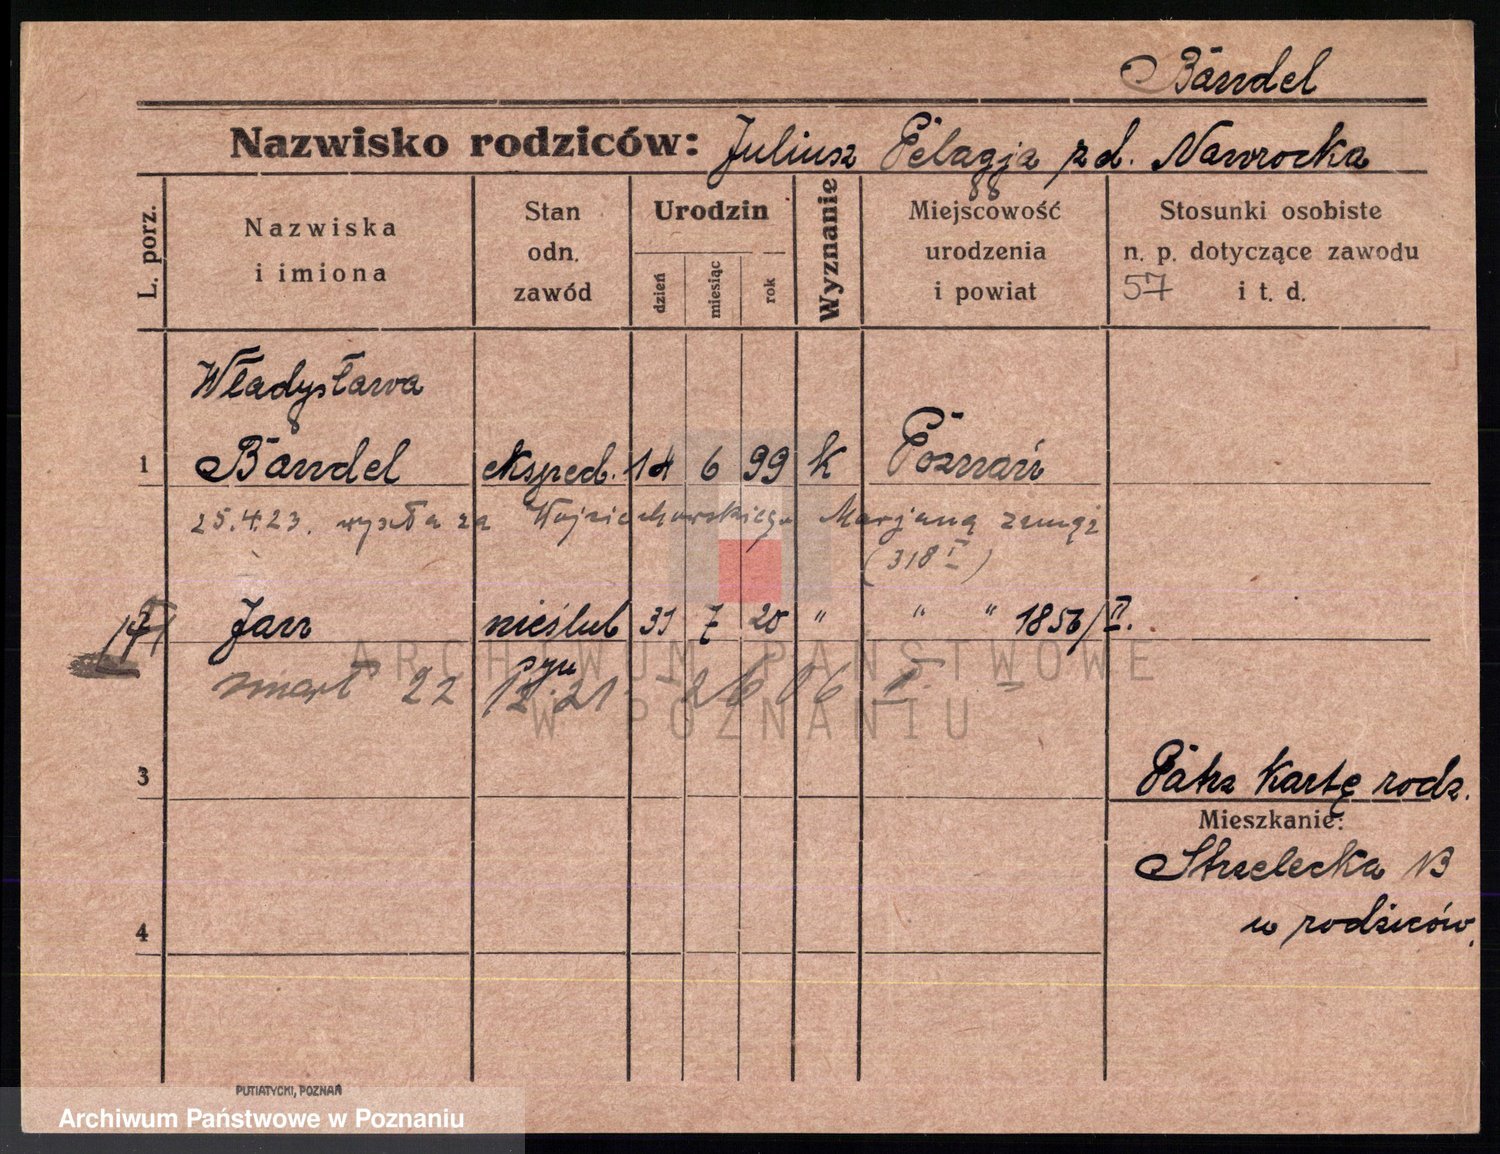 Bändel
Nazwisko rodziców: Juliusz Pelagja z d. Nawrocka
L. porz.
Nazwiska i imiona
Stan odn. zawód
Urodzin
dzień
miesiąc
rok
Wyznanie
Miejscowość urodzenia i powiat
Stosunki osobiste n. p. dotyczące zawodu i t. d.
88
57
Władysława
1 Bändel eksped. 14 6 99 k Poznań
25.4.23. wyszła za Wojciechowskiego Marjana zamąż
(318 I)
Jan nieślub 31 7 20 " " " 1856/II.
syn
zmarł 22 12.21.
3
Patrz kartę rodz.
Mieszkanie:
Strzelecka 13
u rodziców.
4
PUTIATYCKI, POZNAŃ
ARCHIWUM PAŃSTWOWE
W POZNANIU
Archiwum Państwowe w Poznaniu